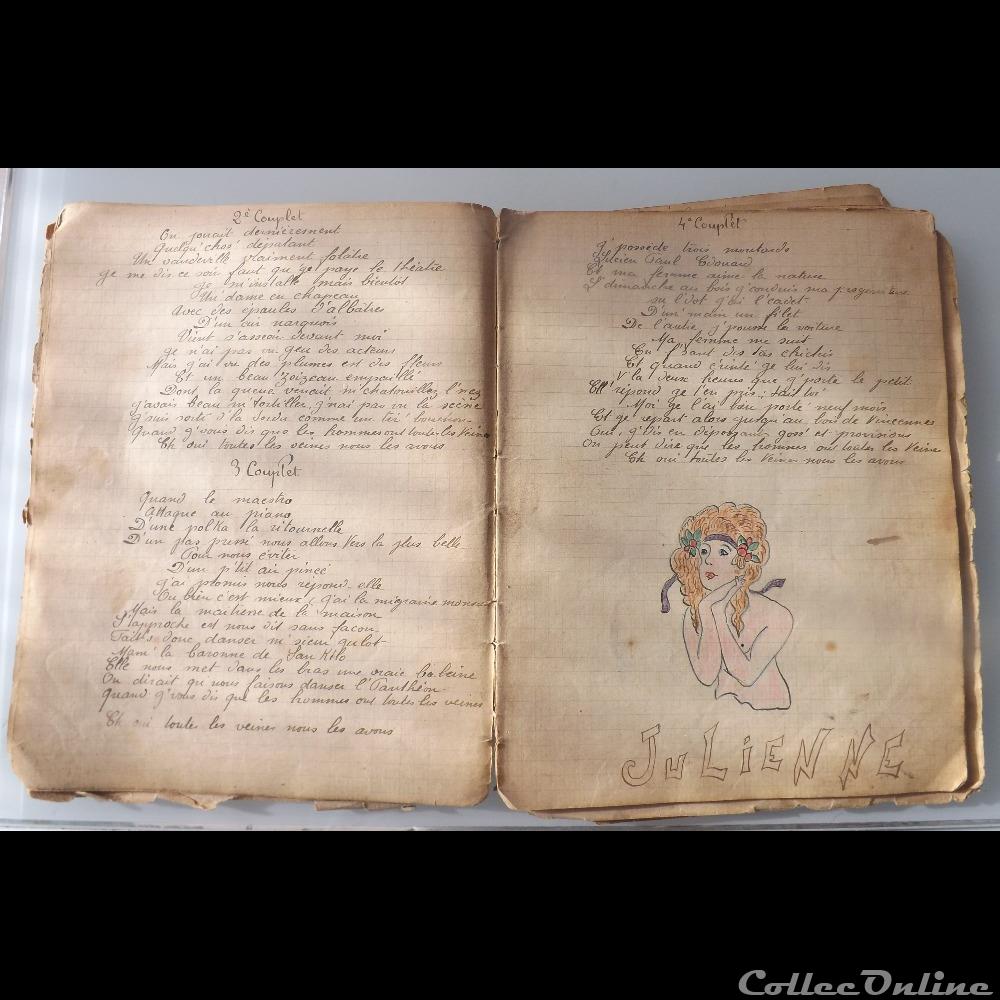 2e Couplet
On jouait dernièrement
Quelqu' chos' d'épatant
Un vaudeville vraiment folatre
je me dis ce soir faut qu' je paye le théatre
je m'installe mais bientot
Un' dame en chapeau
Avec des épaules d'albatres
D'un air narquois
Vient s'asseoir devant moi
je n'ai pas vu jeu des acteurs
Mais j'ai vu des plumes est des fleurs
Et un beau zoizeau empaillé
Dont la queue venait m'chatouillez l'nez
j'avais beau m'tortiller, j'nai pas vu la scène
j'suis sorti d'là
comme un
Quand j'vous dis que les hommes ont toutes les veines
Eh oui toutes les veines nous les avons
3 Couplet
Quand le maestro
Attaque au piano
D'une polka la ritournelle
D'un pas pressé nous allons vers la plus belle
Pour nous éviter
D'un p'tit air pincé
j'ai promis nous répond-elle
Ou bien c'est mieux, j'ai la migraine
Mais la maitresse de la maison
S'approche est nous dit sans façon
Fait's donc danser m'sieur
Mam' la baronne de Sankilo
Elle nous met dans les bras une vraie baleine
On dirait qu' nous faisons danser l'Panthéon
Quand j'vous dis que les hommes ont toutes les veines
Eh oui toutes les veines nous les avons
4e Couplet
J'possède trois moutards
Julien Paul Edouard
Et ma femme aime la nature
L'dimanche au bois j'conduis ma progéniture
su l'dot j'ai l'cadet
D'un' main un filet
De l'autre j'pousse la voiture
Ma femme me suit
En f'sant des tas
Et quand éreinté je lui dis
V'la deux heures que j'porte le petit
Ell' répond je t'en pris: tait toi
Moi je l'ai bien porté neuf mois
Est je repart alors jusqu'au bois de Vincennes
Oui, j'dis en déposant goss' et provisions
On peut dire que les hommes ont toutes les veines
Eh oui toutes les veines nous les avons
JULIENNE
CollecOnline